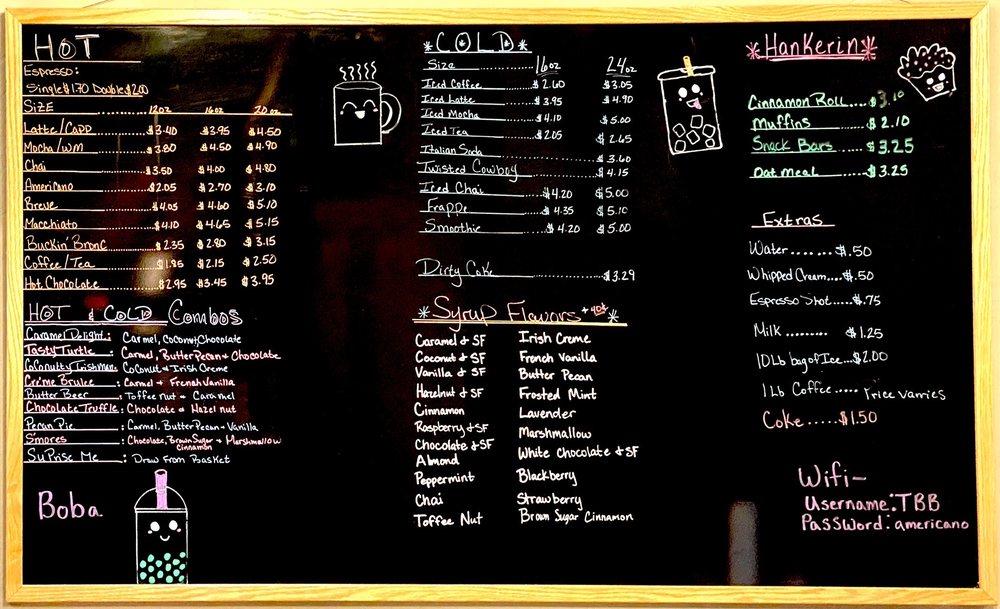 HOT
Espresso:
Single $1.70 Double $2.00
SIZE 12oz 16oz 20oz
Latte/Capp ........ $3.40 $3.95 $4.50
Mocha/WM ........ $3.80 $4.50 $4.90
Chai ........ $3.50 $4.00 $4.80
Americano ........ $2.05 $2.70 $3.10
Breve ........ $4.05 $4.60 $5.10
Macchiato ........ $4.10 $4.65 $5.15
Buckin' Bronc ........ $2.35 $2.80 $3.15
Coffee/Tea ........ $1.85 $2.15 $2.50
Hot Chocolate ........ $2.95 $3.45 $3.95
HOT & COLD Combos
Caramel Delight: Carmel, Coconut, Chocolate
Tasty Turtle: Carmel, Butter Pecan & Chocolate
CoConutty Irishman: Coconut & Irish Creme
Crème Brulee: Carmel & French Vanilla
Butter Beer: Toffee nut & Caramel
Chocolate Truffle: Chocolate & Hazel nut
Pecan Pie: Carmel, Butter Pecan & Vanilla
S'mores: Chocolate, Brown Sugar & Marshmallow
Cinnamon
SuPrise Me: Draw From Basket
Boba
*COLD*
Size 16oz 24oz
Iced Coffee ........ $2.60 $3.05
Iced Latte ........ $3.95 $4.90
Iced Mocha ........ $4.10 $5.00
Iced Tea ........ $2.05 $2.65
Italian Soda ........ $3.60
Twisted Cowboy ........ $4.15
Iced Chai ........ $4.20 $5.00
Frappe ........ $4.35 $5.10
Smoothie ........ $4.20 $5.00
Dirty Coke ........ $3.29
*Syrup Flavors +40¢*
Caramel & SF Irish Creme
Coconut & SF French Vanilla
Vanilla & SF Butter Pecan
Hazelnut & SF Frosted Mint
Cinnamon Lavender
Raspberry & SF Marshmallow
Chocolate & SF White Chocolate & SF
Almond
Peppermint Blackberry
Chai Strawberry
Toffee Nut Brown Sugar Cinnamon
*HanKerin*
Cinnamon Roll.... $3.10
Muffins ........ $2.10
Snack Bars ..... $3.25
Oat meal ..... $3.25
Extras
Water ....... $.50
Whipped Cream....$.50
Espresso Shot....$.75
Milk ......... $1.25
10Lb bag of Ice...$2.00
1Lb Coffee ..... Price varries
Coke .....$1.50
Wifi-
Username: TBB
Password: americano